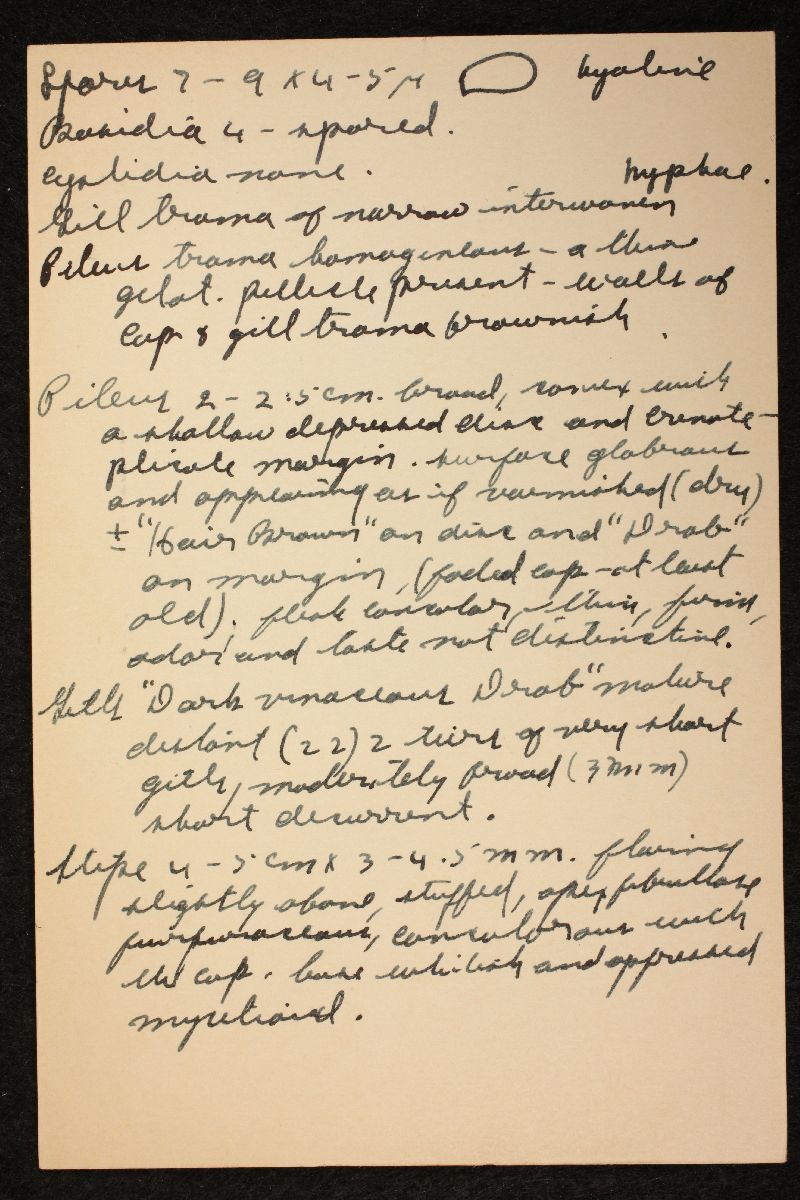 Spores 7 – 9 x 4 – 5 μ hyaline
Basidia 4 – spored.
Cystidia none.
hyphae.
Gill trama of narrow interwoven
Pileus trama homogeneous – a thin
gelat. pellicle present – walls of
cap & gill trama brownish.
Pileus 2 – 2.5 cm. broad, convex with
a shallow depressed disc and crenate-
plicate margin. surface glabrous
and appearing as if varnished (dry)
± "Hair Brown" on disc and "Drab"
on margin, (faded cap – at least
old). flesh concolor, thin, firm,
odor and taste not distinctive.
Gills "Dark vinaceous Drab" mature
distant (22) 2 tiers of very short
gills, moderately broad (3 mm)
short decurrent.
Stipe 4 – 5 cm x 3 – 4.5 mm. flaring
slightly above, stuffed, apex fibrillose
furfuraceous, concolorous with
the cap. base whitish and appressed
mycelioid.